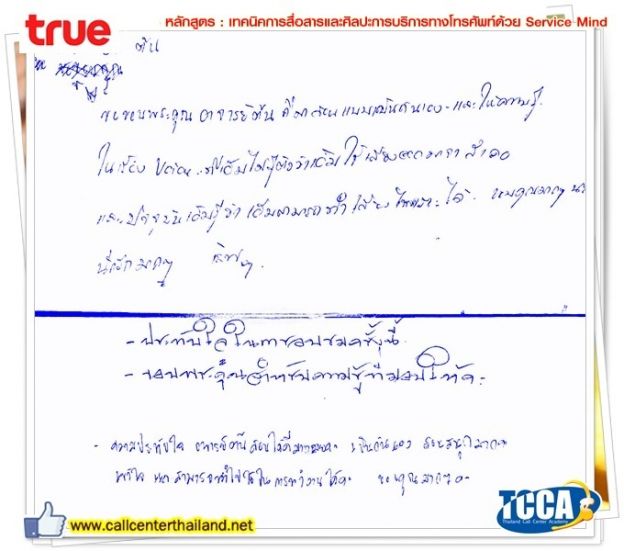 true
หลักสูตร : เทคนิคการสื่อสารและศิลปะการบริการทางโทรศัพท์ด้วย Service Mind
ต้น
ขอขอบพระคุณ อาจารย์ต้น ที่มาสอนแบบเป็นกันเอง และให้ความรู้
ในเรื่อง
และปัจจุบันเดิมรู้ว่า เดิมสามารถทำเสียงไพเราะได้ ขอบคุณมากๆ นะ
น่ารักมากๆ
- ประทับใจในการอบรมครั้งนี้
- ขอบพระคุณสำหรับความรู้ที่มอบให้ค่ะ
- ความประทับใจ อาจารย์ต้นสอนได้ดีมากเลยค่ะ เป็นกันเอง สอนสนุกมากค่ะ
เข้าใจ สามารถนำไปใช้ในการทำงานได้ค่ะ ขอบคุณมากค่ะ
www.callcenterthailand.net
TCCA
Thailand Call Center Academy